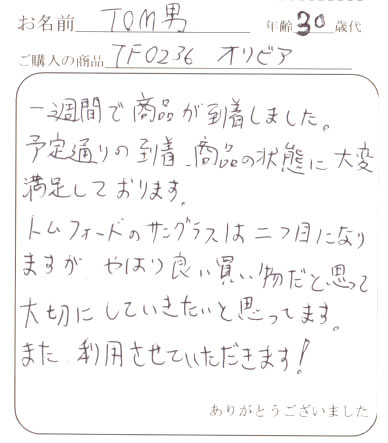 お名前 TOM男 年齢30歳代
ご購入の商品 TF0236 オリビア
一週間で商品が到着しました。
予定通りの到着、商品の状態に大変
満足しております。
トムフォードのサングラスは二つ目になり
ますが、やはり良い買い物だと思って
大切にしていきたいと思ってます。
また、利用させていただきます!
ありがとうございました